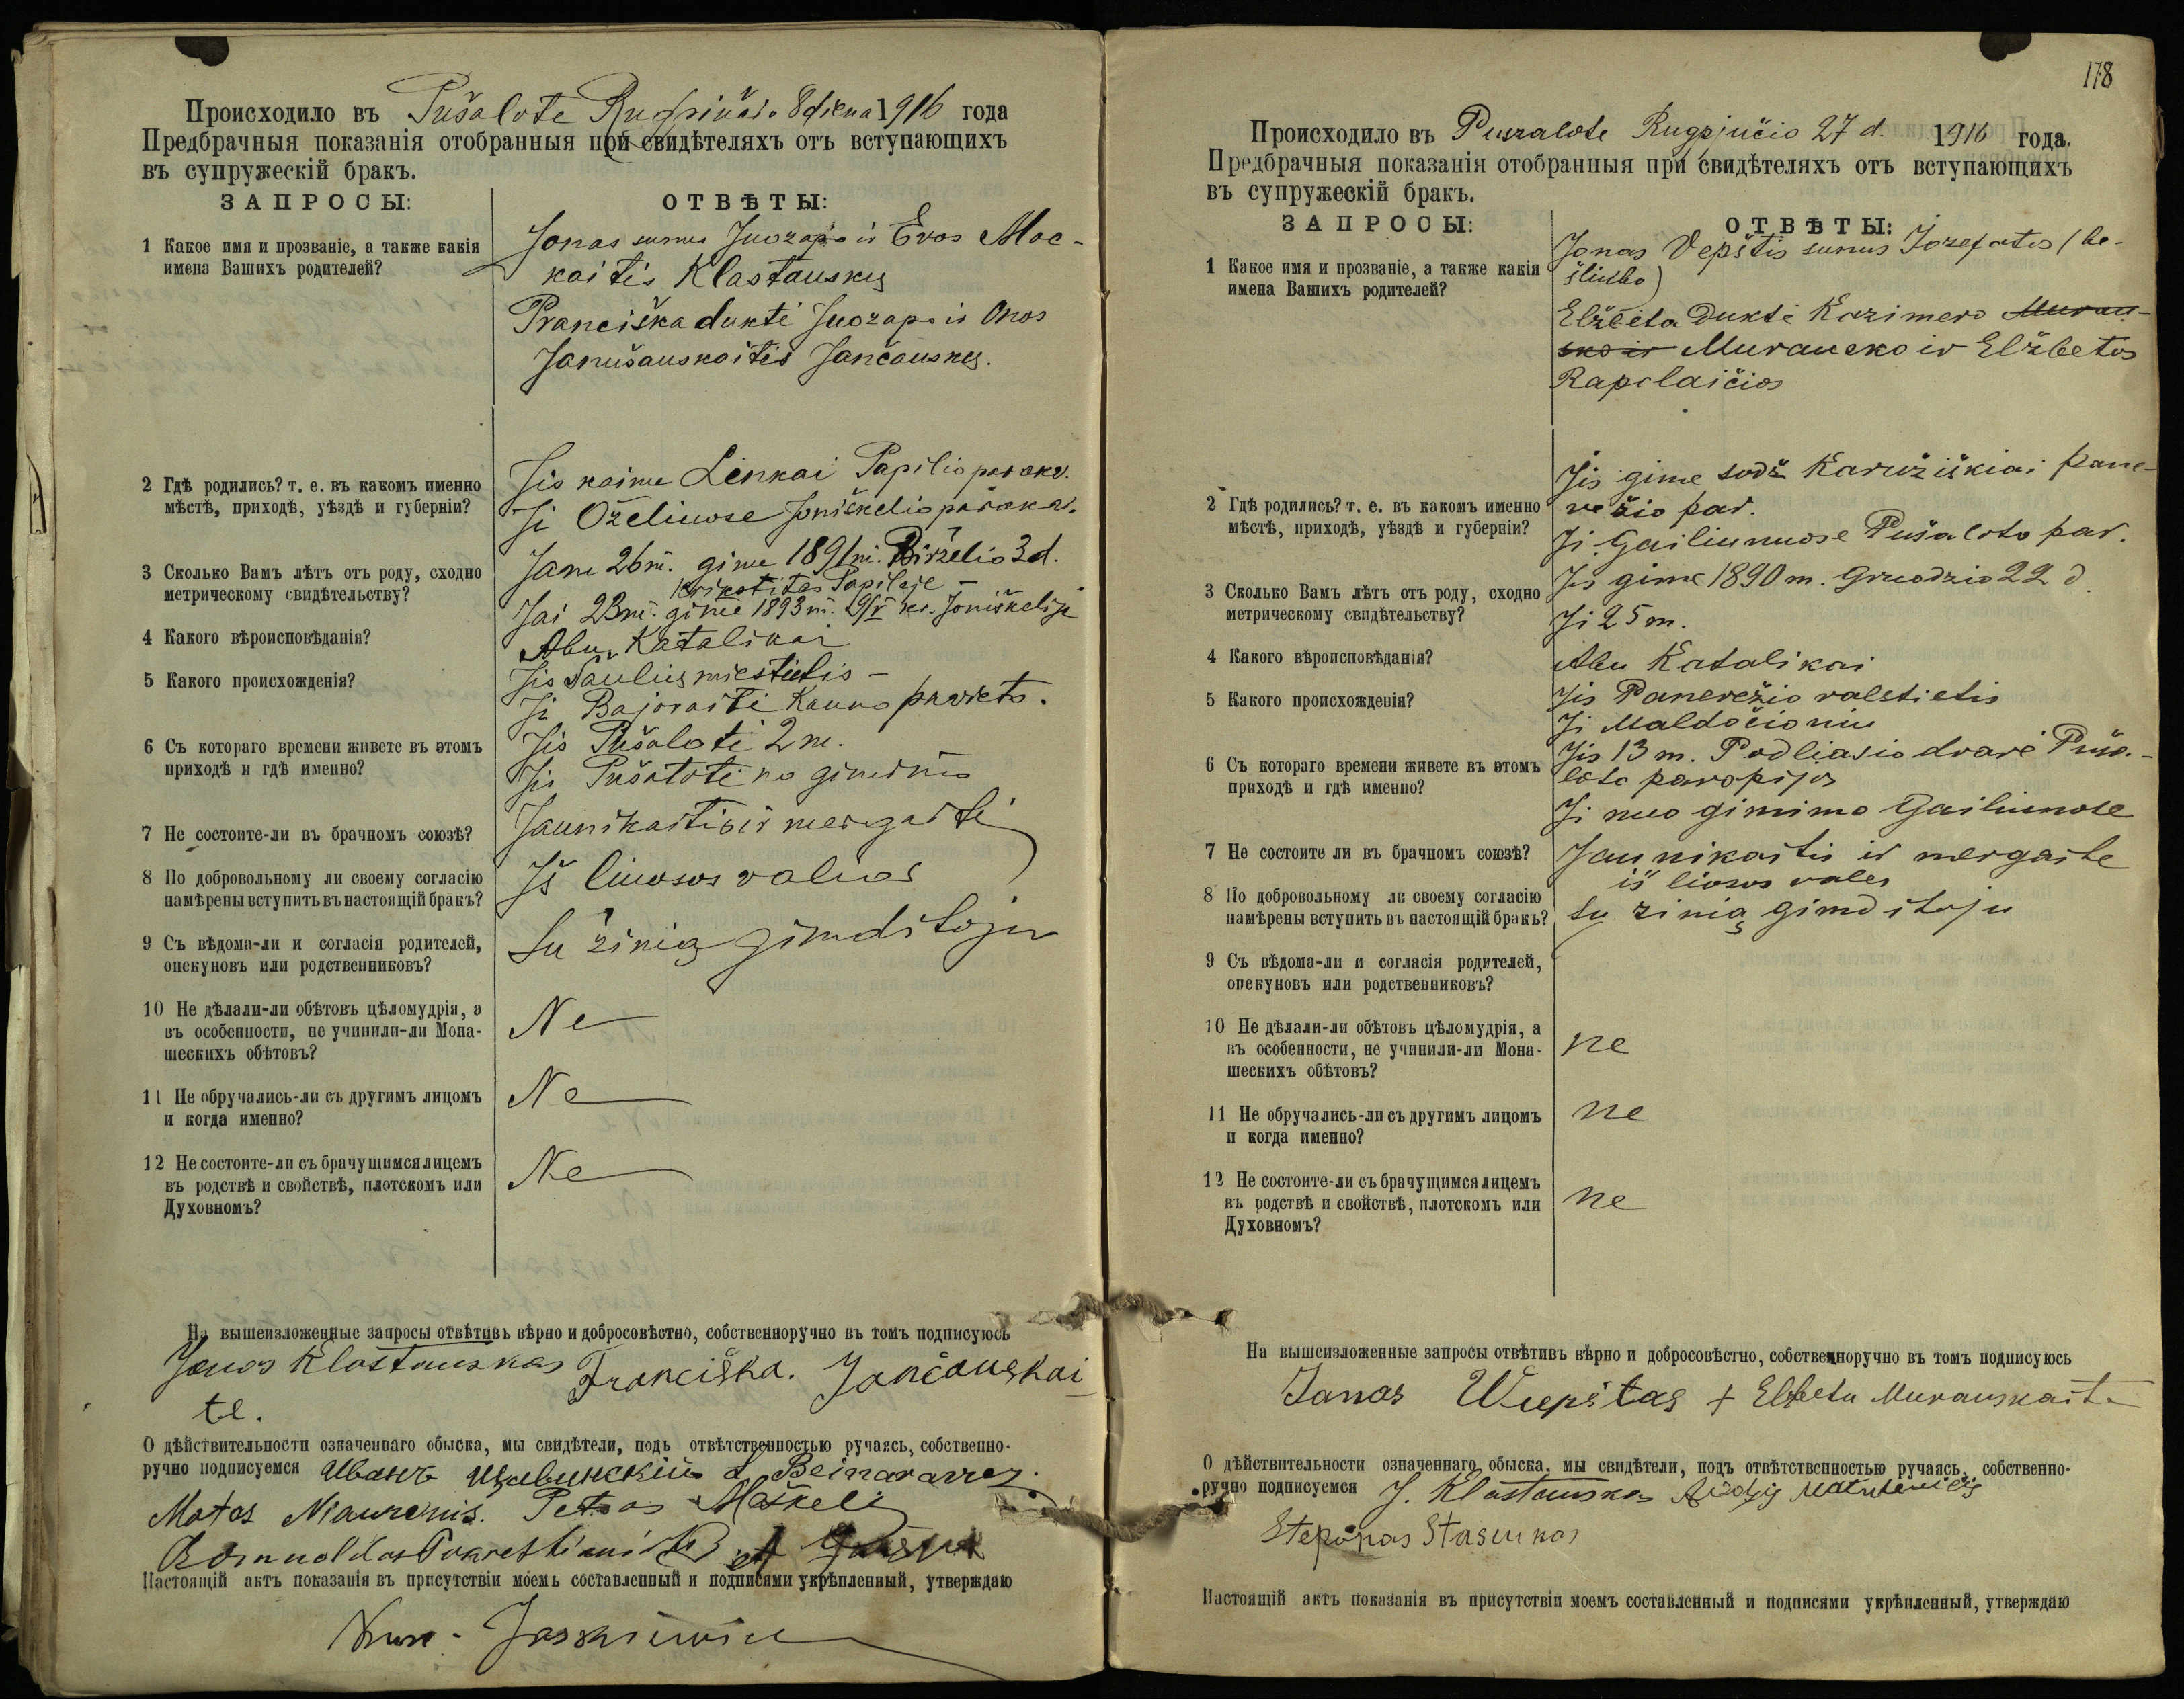 Происходило въ Pušalote Rugpiučio 8 diena 1916 года
Предбрачныя показанія отобранныя при свидѣтеляхъ отъ вступающихъ
въ супружескій бракъ.
ЗАПРОСЫ:
ОТВѢТЫ:
1 Какое имя и прозваніе, а также какія
имена Вашихъ родителей?
Jonas sunus Juozapo ir Evos Moc-
kaitis Klastauskų
Pranciška dukti Juozapo ir Onos
Janušauskaitės Jančauskų.
2 Гдѣ родились? т. е. въ какомъ именно
мѣстѣ, приходѣ, уѣздѣ и губерніи?
Jis kaime Lenkai Papilio parakv.
Ji Oželiuose Joniškelio parakv.
3 Сколько Вамъ лѣтъ отъ роду, сходно
метрическому свидѣтельству?
Jam 26 m. gime 1891 m. Birželio 3 d.
krikštitas Papilėje
Jai 23 m. gime 1893 m. Joniškelije
4 Какого вѣроисповѣданія?
Abu Katalikai
5 Какого происхожденія?
Jis Šaulių miestietis
Ji Bajoraitė Kauno pavieto.
6 Съ котораго времени живете въ этомъ
приходѣ и гдѣ именно?
Jis Pušaloti 2 m.
Ji Pušaloti no gimimo
7 Не состоите-ли въ брачномъ союзѣ?
Jaunikaitis ir mergaitė
8 По добровольному ли своему согласію
намѣрены вступить въ настоящій бракъ?
Iš liuosos valios
9 Съ вѣдома-ли и согласія родителей,
опекуновъ или родственниковъ?
Su žinią gimditoju
10 Не дѣлали-ли обѣтовъ цѣломудрія, а
въ особенности, не учинили-ли Мона-
шескихъ обѣтовъ?
Ne
11 Не обручались-ли съ другимъ лицомъ
и когда именно?
Ne
12 Не состоите-ли съ брачущимся лицемъ
въ родствѣ и свойствѣ, плотскомъ или
Духовномъ?
Ne
На вышеизложенные запросы отвѣтивъ вѣрно и добросовѣстно, собственноручно въ томъ подписуюсь
Jonas Klastauskas Franciška. Jančauskai
te.
О дѣйствительности означеннаго обыска, мы свидѣтели, подъ отвѣтственностью ручаясь, собственно-
ручно подписуемся Иванъ
Motas Niaurenis. Petras Maškeli
Настоящій актъ показанія въ присутствіи моемъ составленный и подписями укрѣпленный, утверждаю
178
Происходило въ Puszalote Rugpjučio 27 d. 1916 года.
Предбрачныя показанія отобранныя при свидѣтеляхъ отъ вступающихъ
въ супружескій бракъ.
ЗАПРОСЫ:
ОТВѢТЫ:
1 Какое имя и прозваніе, а также какія
имена Вашихъ родителей?
Jonas Vepštis sunus Jozefatos (be-
šliubo)
Elžbieta Dukti Kazimero Muran-
sko ir Murausko ir Elžbetos
Rapolaičios
2 Гдѣ родились? т. е. въ какомъ именно
мѣстѣ, приходѣ, уѣздѣ и губерніи?
Jis gime sodž Karužiškiai pane-
vėžio par.
Ji Gailiunuose Pušaloto par.
3 Сколько Вамъ лѣтъ отъ роду, сходно
метрическому свидѣтельству?
Jis gime 1890 m. Gruodzio 22 d
Ji 25 m.
4 Какого вѣроисповѣданія?
Abu Katalikai
5 Какого происхожденія?
Jis Panevežio valstietis
Ji Maldočioniu
6 Съ котораго времени живете въ этомъ
приходѣ и гдѣ именно?
Jis 13 m. Podliasio dvare Puša-
loto parapijos
Ji nuo gimimo Gailiunose
7 Не состоите ли въ брачномъ союзѣ?
Jaunikaitis ir mergaite
8 По добровольному ли своему согласію
намѣрены вступить въ настоящій бракъ?
iš liosos vales
su zinią gimditoju
9 Съ вѣдома-ли и согласія родителей,
опекуновъ или родственниковъ?
10 Не дѣлали-ли обѣтовъ цѣломудрія, а
въ особенности, не учинили-ли Мона-
шескихъ обѣтовъ?
ne
11 Не обручались-ли съ другимъ лицомъ
и когда именно?
ne
12 Не состоите-ли съ брачущимся лицемъ
въ родствѣ и свойствѣ, плотскомъ или
Духовномъ?
ne
На вышеизложенные запросы отвѣтивъ вѣрно и добросовѣстно, собственноручно въ томъ подписуюсь
Janas Wepštas + Elžbeta Murauskaite
О дѣйствительности означеннаго обыска, мы свидѣтели, подъ отвѣтственностью ручаясь, собственно-
ручно подписуемся J. Klastauskas
Steponas Stasiunas
Настоящій актъ показанія въ присутствіи моемъ составленный и подписями укрѣпленный, утверждаю